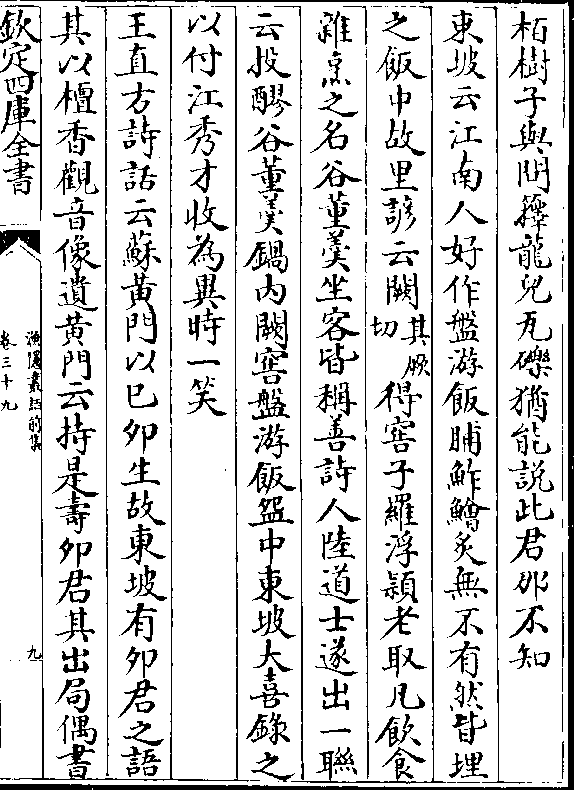 栢樹子與問籜龍兒瓦礫猶能説此君那不知
東坡云江南人好作盤游飯脯鮓鱠炙無不有然皆埋
之飯中故里諺云闕其厥切得窖子羅浮頴老取凡飲食
雜烹之名谷董羮坐客皆稱善詩人陸道士遂出一聯
云投醪谷董羮鍋内闕窖盤游飯盌中東坡大喜錄之
以付江秀才收為異時一笑
王直方詩話云蘇黄門以已夘生故東坡有夘君之語
其以檀香觀音像遺黄門云持是壽夘君其出局偶書
欽定四庫全書
漁隱叢話前集
卷三十九
九